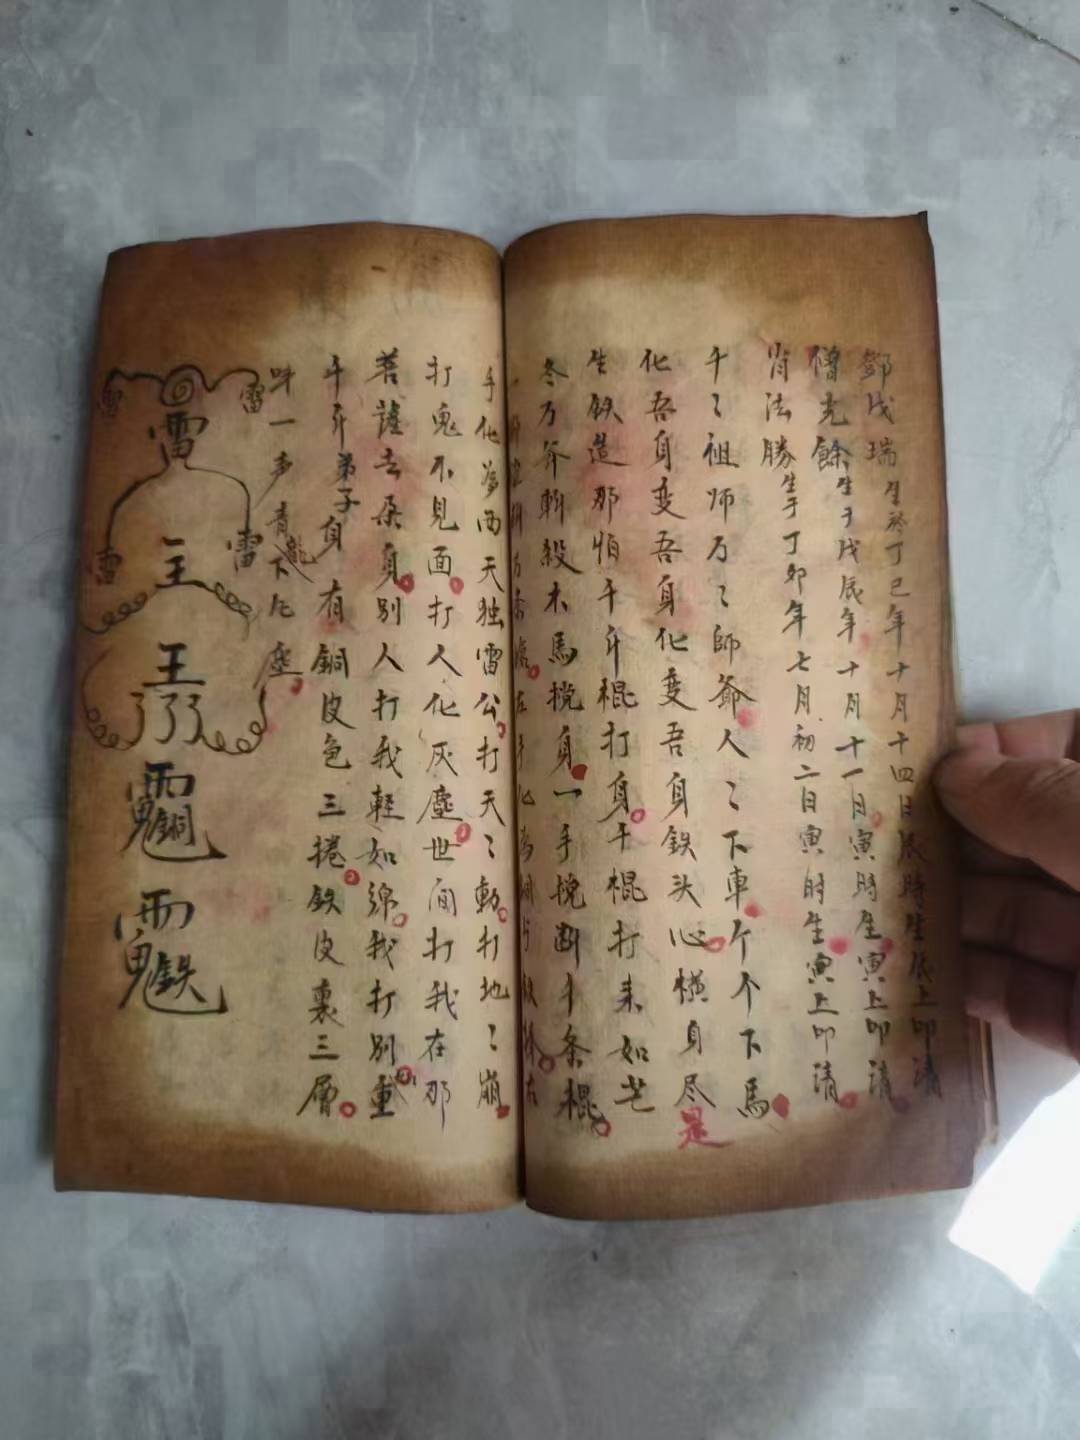 鄧戊瑞生於丁巳年十月十四日辰時生辰上叩請
僧克餘生于戊辰年十月十一日寅時生寅上叩請
肖法勝生于丁卯年七月初二日寅时生寅上叩請
千〻祖师万〻師爺人〻下車个个下馬
化吾身变吾身化变吾身鉄头心横身尽是
生鉄造那怕千斤棍打身千棍打来如芒
冬万斧斬殺木馬挽身一手挽断千条棍
手化為西天独雷公打天〻動打地〻崩
打鬼不見面打人化灰塵世间打我在那
菩薩去朵身别人打我輕如綿我打别重
千斤弟子身有銅皮包三捲鉄皮裹三層
吽一声青龍下
雷
雷
雷
雷
雷
王